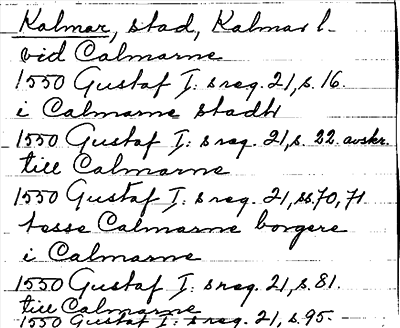 Kalmar, stad, Kalmar l.
vid Calmarne
1550 Gustaf I:s reg. 21, s. 16.
i Calmarne stadh
1550 Gustaf I:s reg. 21, s. 22. avskr.
till Calmarne
1550 Gustaf I:s reg. 21, ss. 70, 71
tesse Calmarne borgere
i Calmarne
1550 Gustaf I:s reg. 21, s. 81.
till Calmarne
1550 Gustaf I:s reg. 21, s. 95.